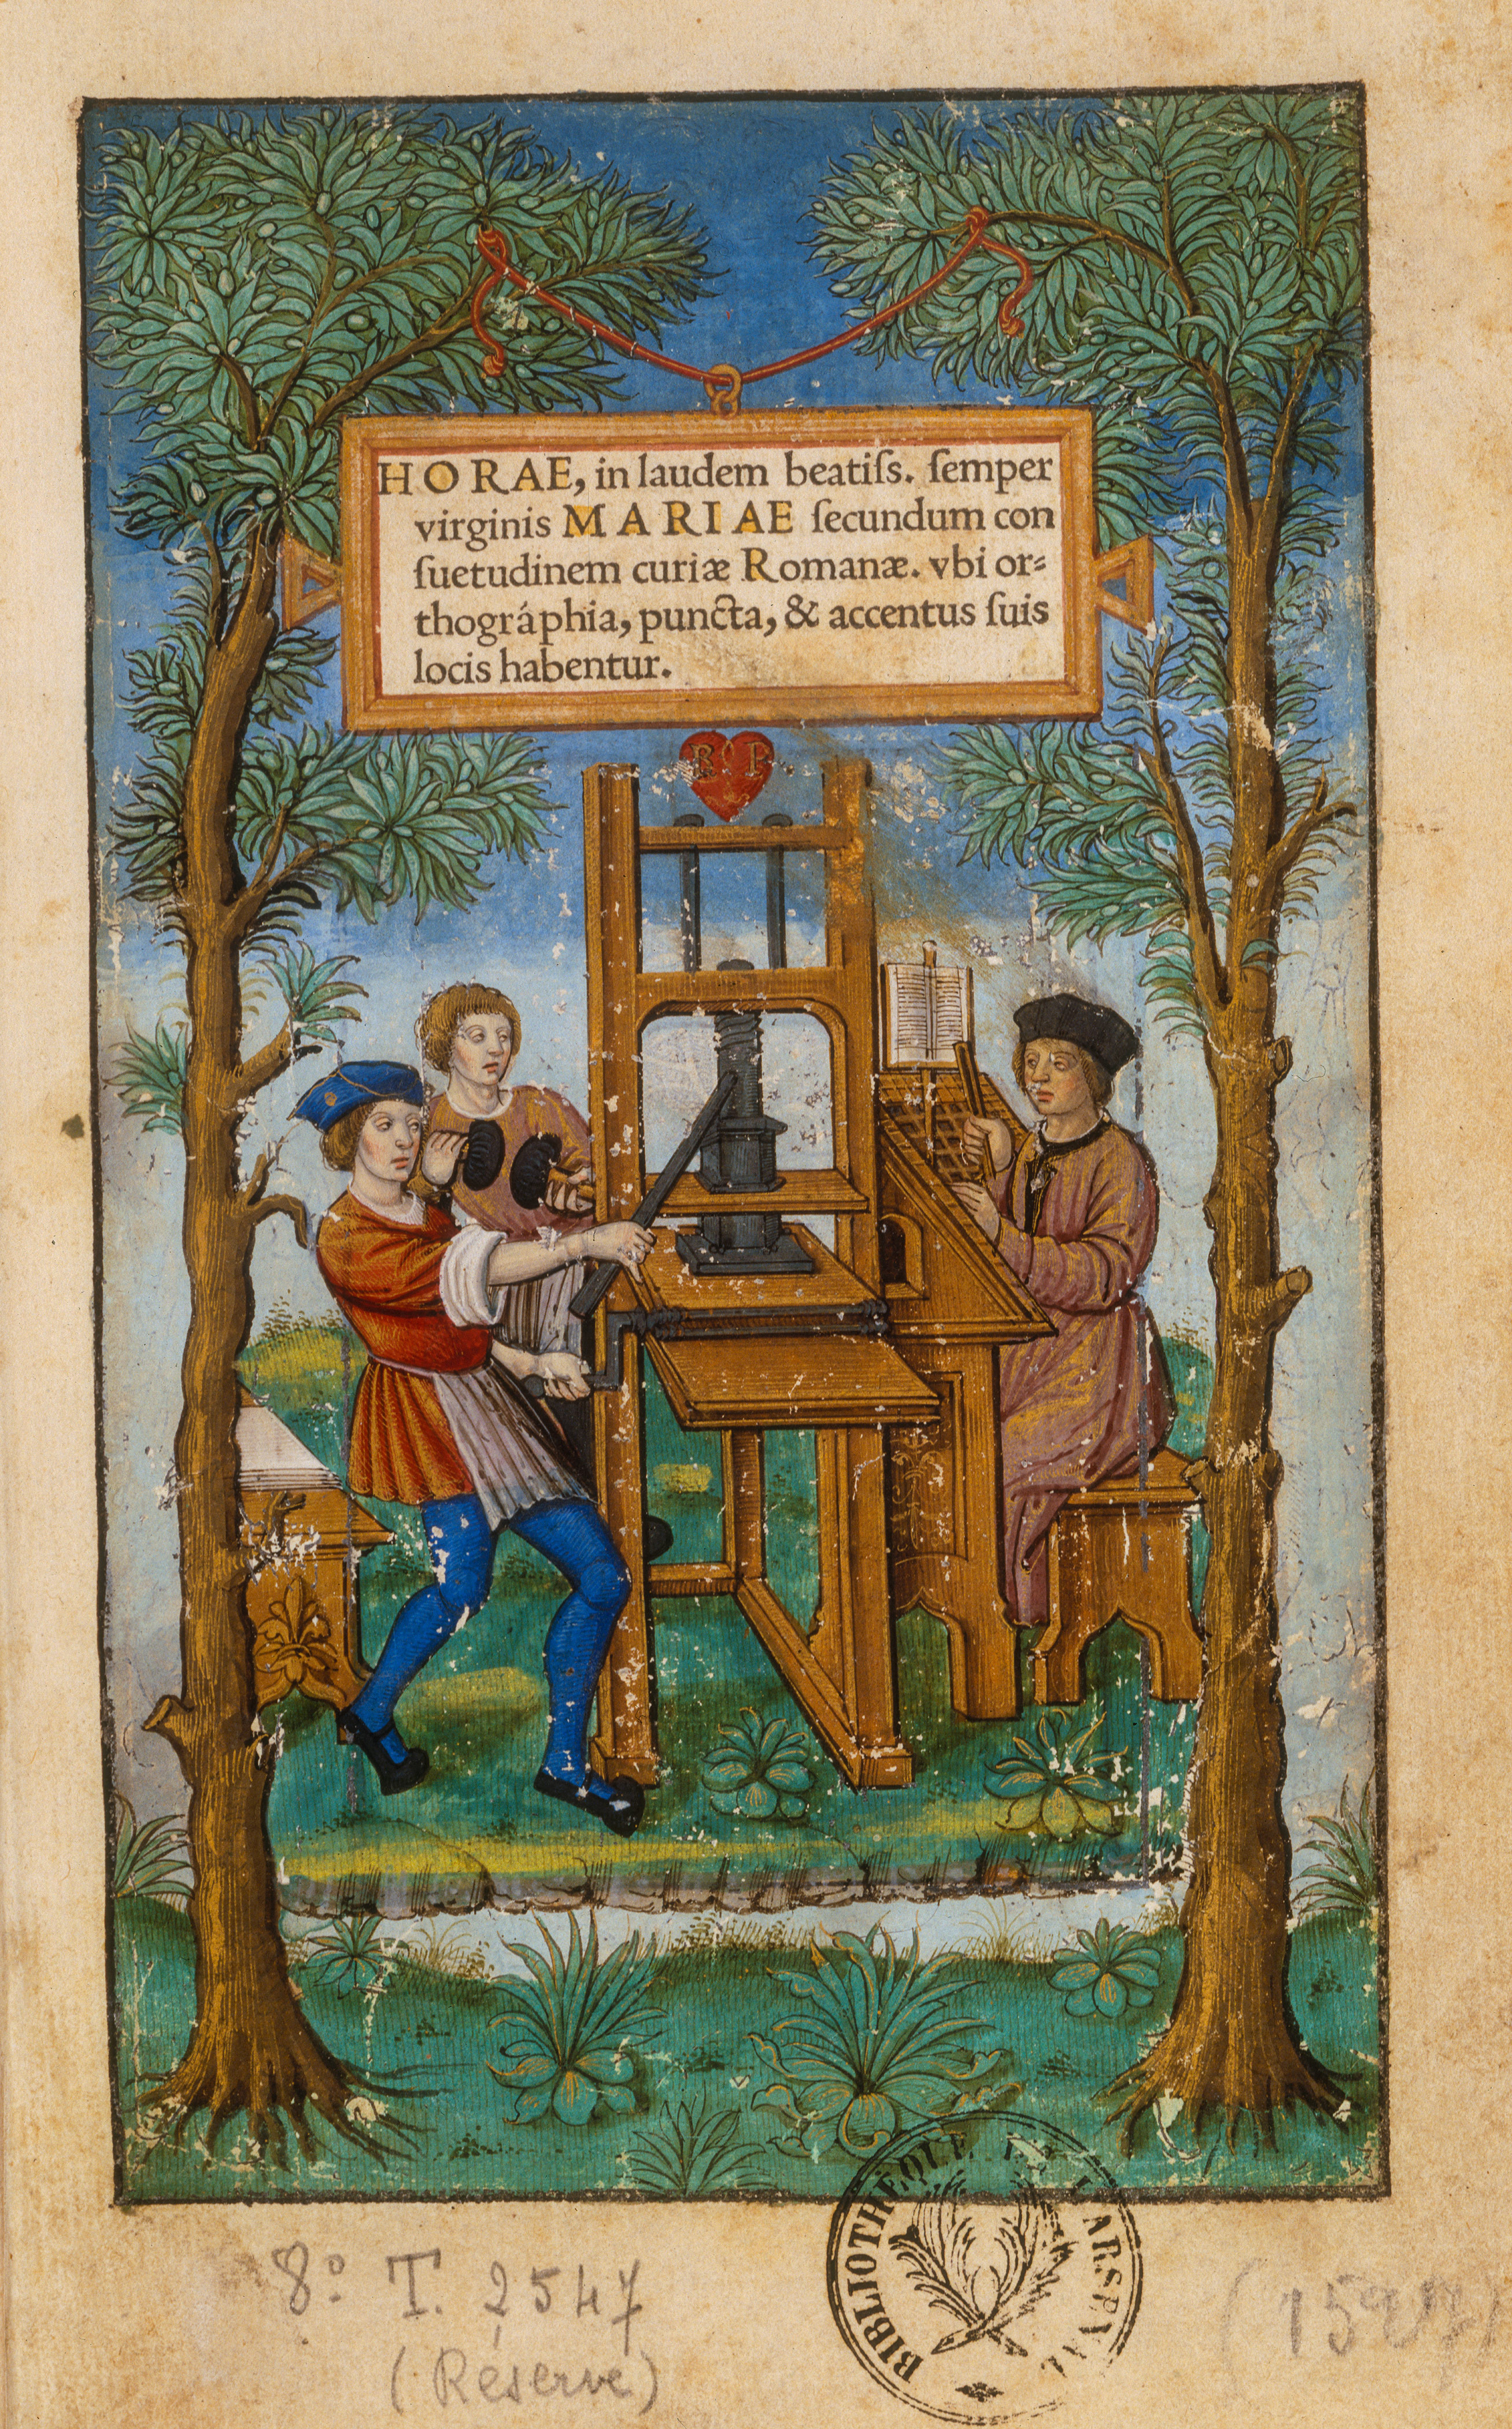 HORAE, in laudem beatiſs. ſemper
virginis MARIAE ſecundum con
ſuetudinem curiæ Romanæ. vbi or⸗
thográphia, puncta, & accentus ſuis
locis habentur.
R P
BIBLIOTHÈQUE DE L'ARSENAL
8º T. 2547
(Réserve)